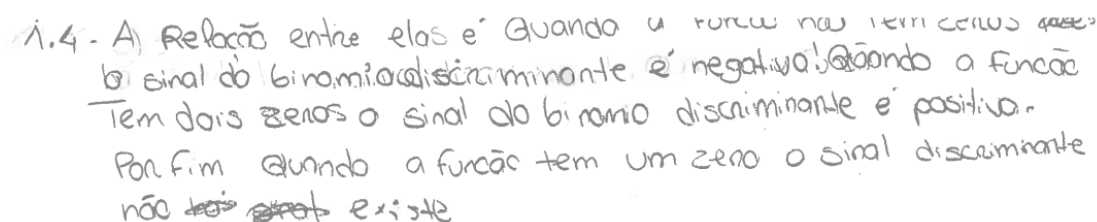 1.4 - A) Relação entre elas é Quando a função não tem zeros
o sinal do binomio discriminante é negativo! Quando a função
Tem dois zeros o sinal do binomio discriminante é positivo.
Por fim Quando a função tem um zero o sinal discriminante
não existe